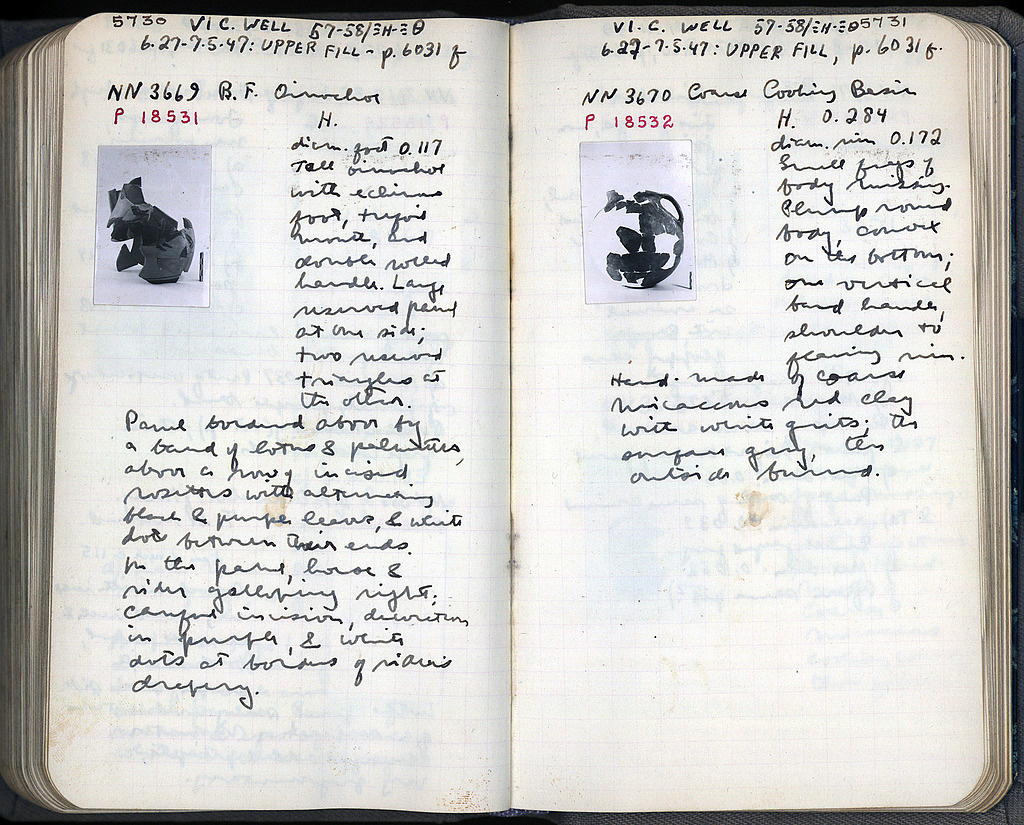 5730 VI C. WELL 57-58/ΞΗ-ΞΘ
6.27-7.5.47: UPPER FILL - p. 6031 f
NN 3669 B. F. Oinochoe
P 18531 H.
diam. foot 0.117
Tall oinochoe
with echinus
foot, trefoil
mouth, and
double rolled
handle. Large
reserved panel
at one side;
two reserved
triangles at
the other.
Panel bordered above by
a band of lotus & palmettes,
above a row of incised
rosettes with alternating
black & purple leaves, & white
dots between their ends.
In the panel, horse &
rider galloping right;
careful incision, decoration
in purple, & white
dots at borders of rider's
drapery.
VI. C. WELL 57-58/ΞΗ-ΞΘ 5731
6.27-7.5.47: UPPER FILL, p. 6031 f.
NN 3670 Coarse Cooking Basin
P 18532 H. 0.284
diam. rim 0.172
Small frags of
body missing.
Plump round
body, convex
on the bottom;
one vertical
band handle,
shoulder to
flaring rim.
Hand-made of coarse
micaceous red clay
with white grits; the
surface gray, the
outside burned.